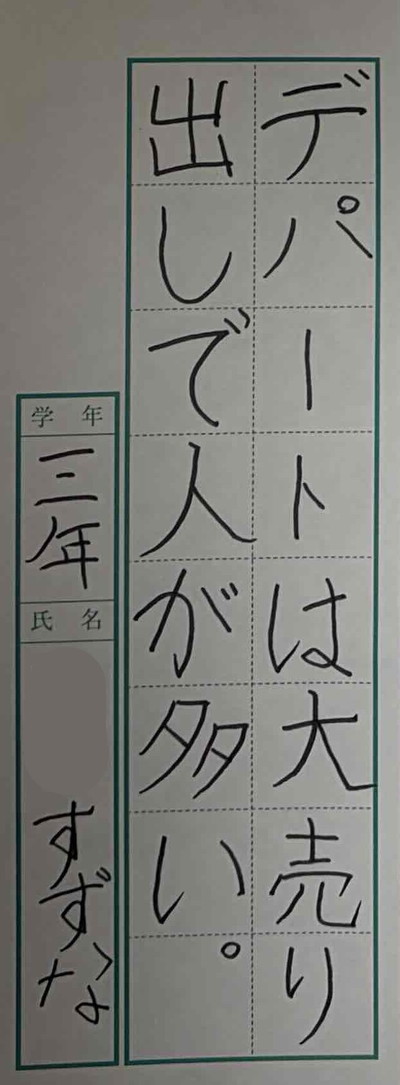 デパートは大売り
出しで人が多い。
学年
三年
氏名
すずな